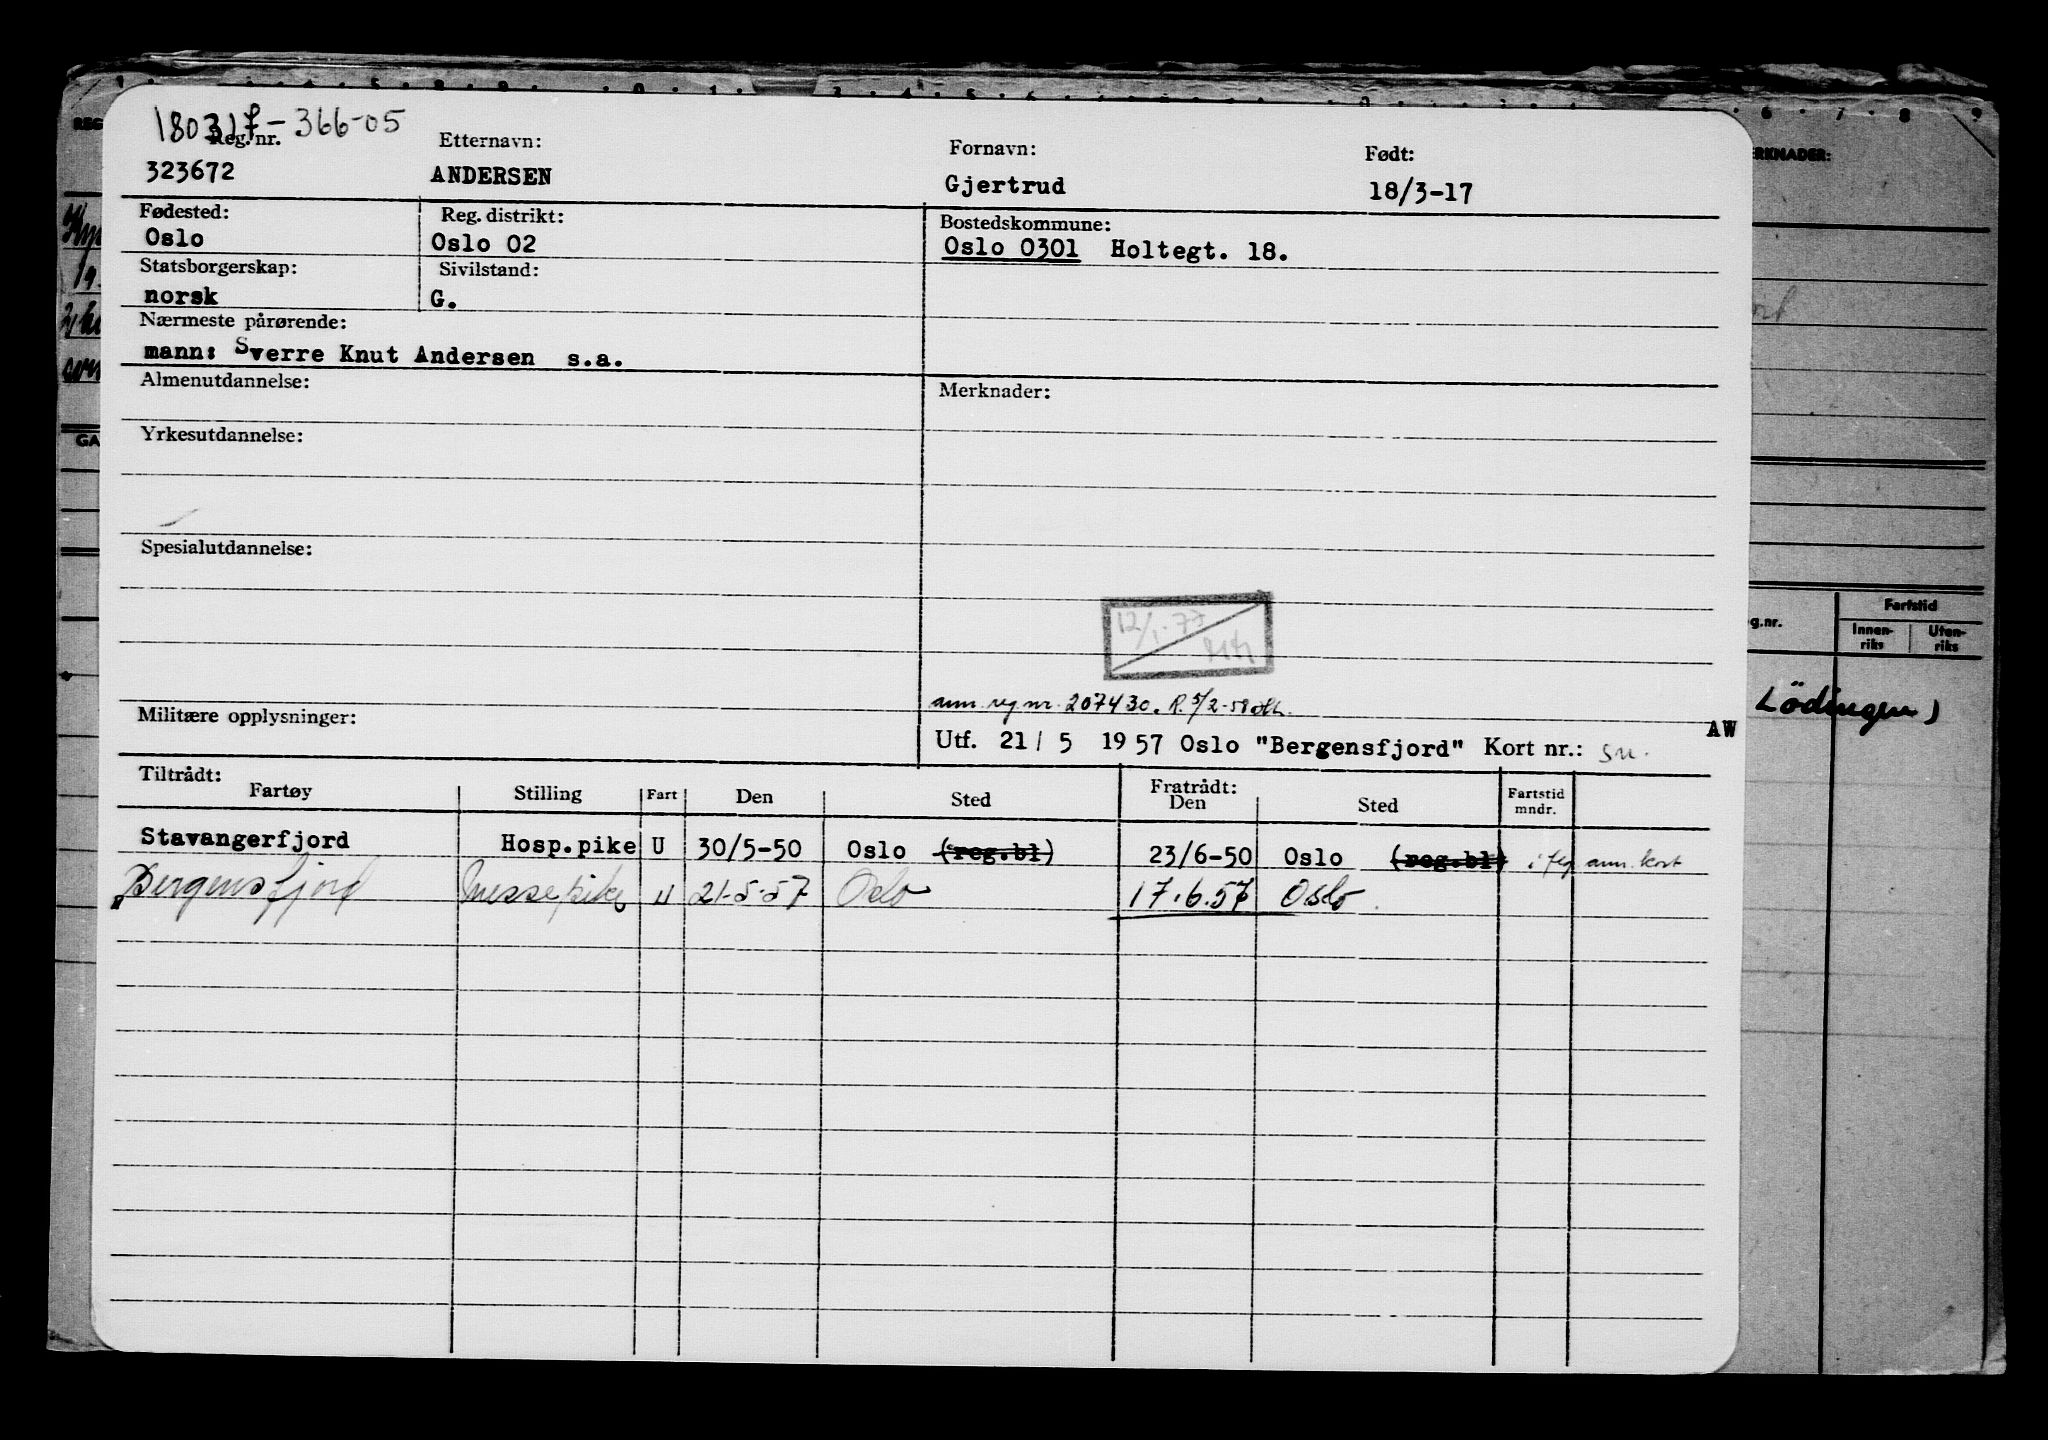 180317-366-05
Reg.nr. Etternavn: Fornavn: Født:
323672 ANDERSEN Gjertrud 18/3-17
Fødested: Reg. distrikt: Bostedskommune:
Oslo Oslo 02 Oslo 0301 Holtegt. 18.
Statsborgerskap: Sivilstand:
norsk G.
Nærmeste pårørende:
mann: Sverre Knut Andersen s.a.
Almenutdannelse: Merknader:
Yrkesutdannelse:
Spesialutdannelse:
12/1-77
ann. reg nr. 207430. R. 5/2-58
Militære opplysninger:
Utf. 21/5 1957 Oslo "Bergensfjord" Kort nr.: sn. AW
Tiltrådt: Fratrådt:
Fartøy Stilling Fart Den Sted Den Sted Fartstid mndr.
Stavangerfjord Hosp.pike U 30/5-50 Oslo (reg.bl) 23/6-50 Oslo (reg.bl) i flg ann. kort
Bergensfjord Messepike U 21-5-57 Oslo 17.6.57 Oslo
RKNADER:
g.nr. Fartstid
Innen-riks Uten-riks
Lödingen)